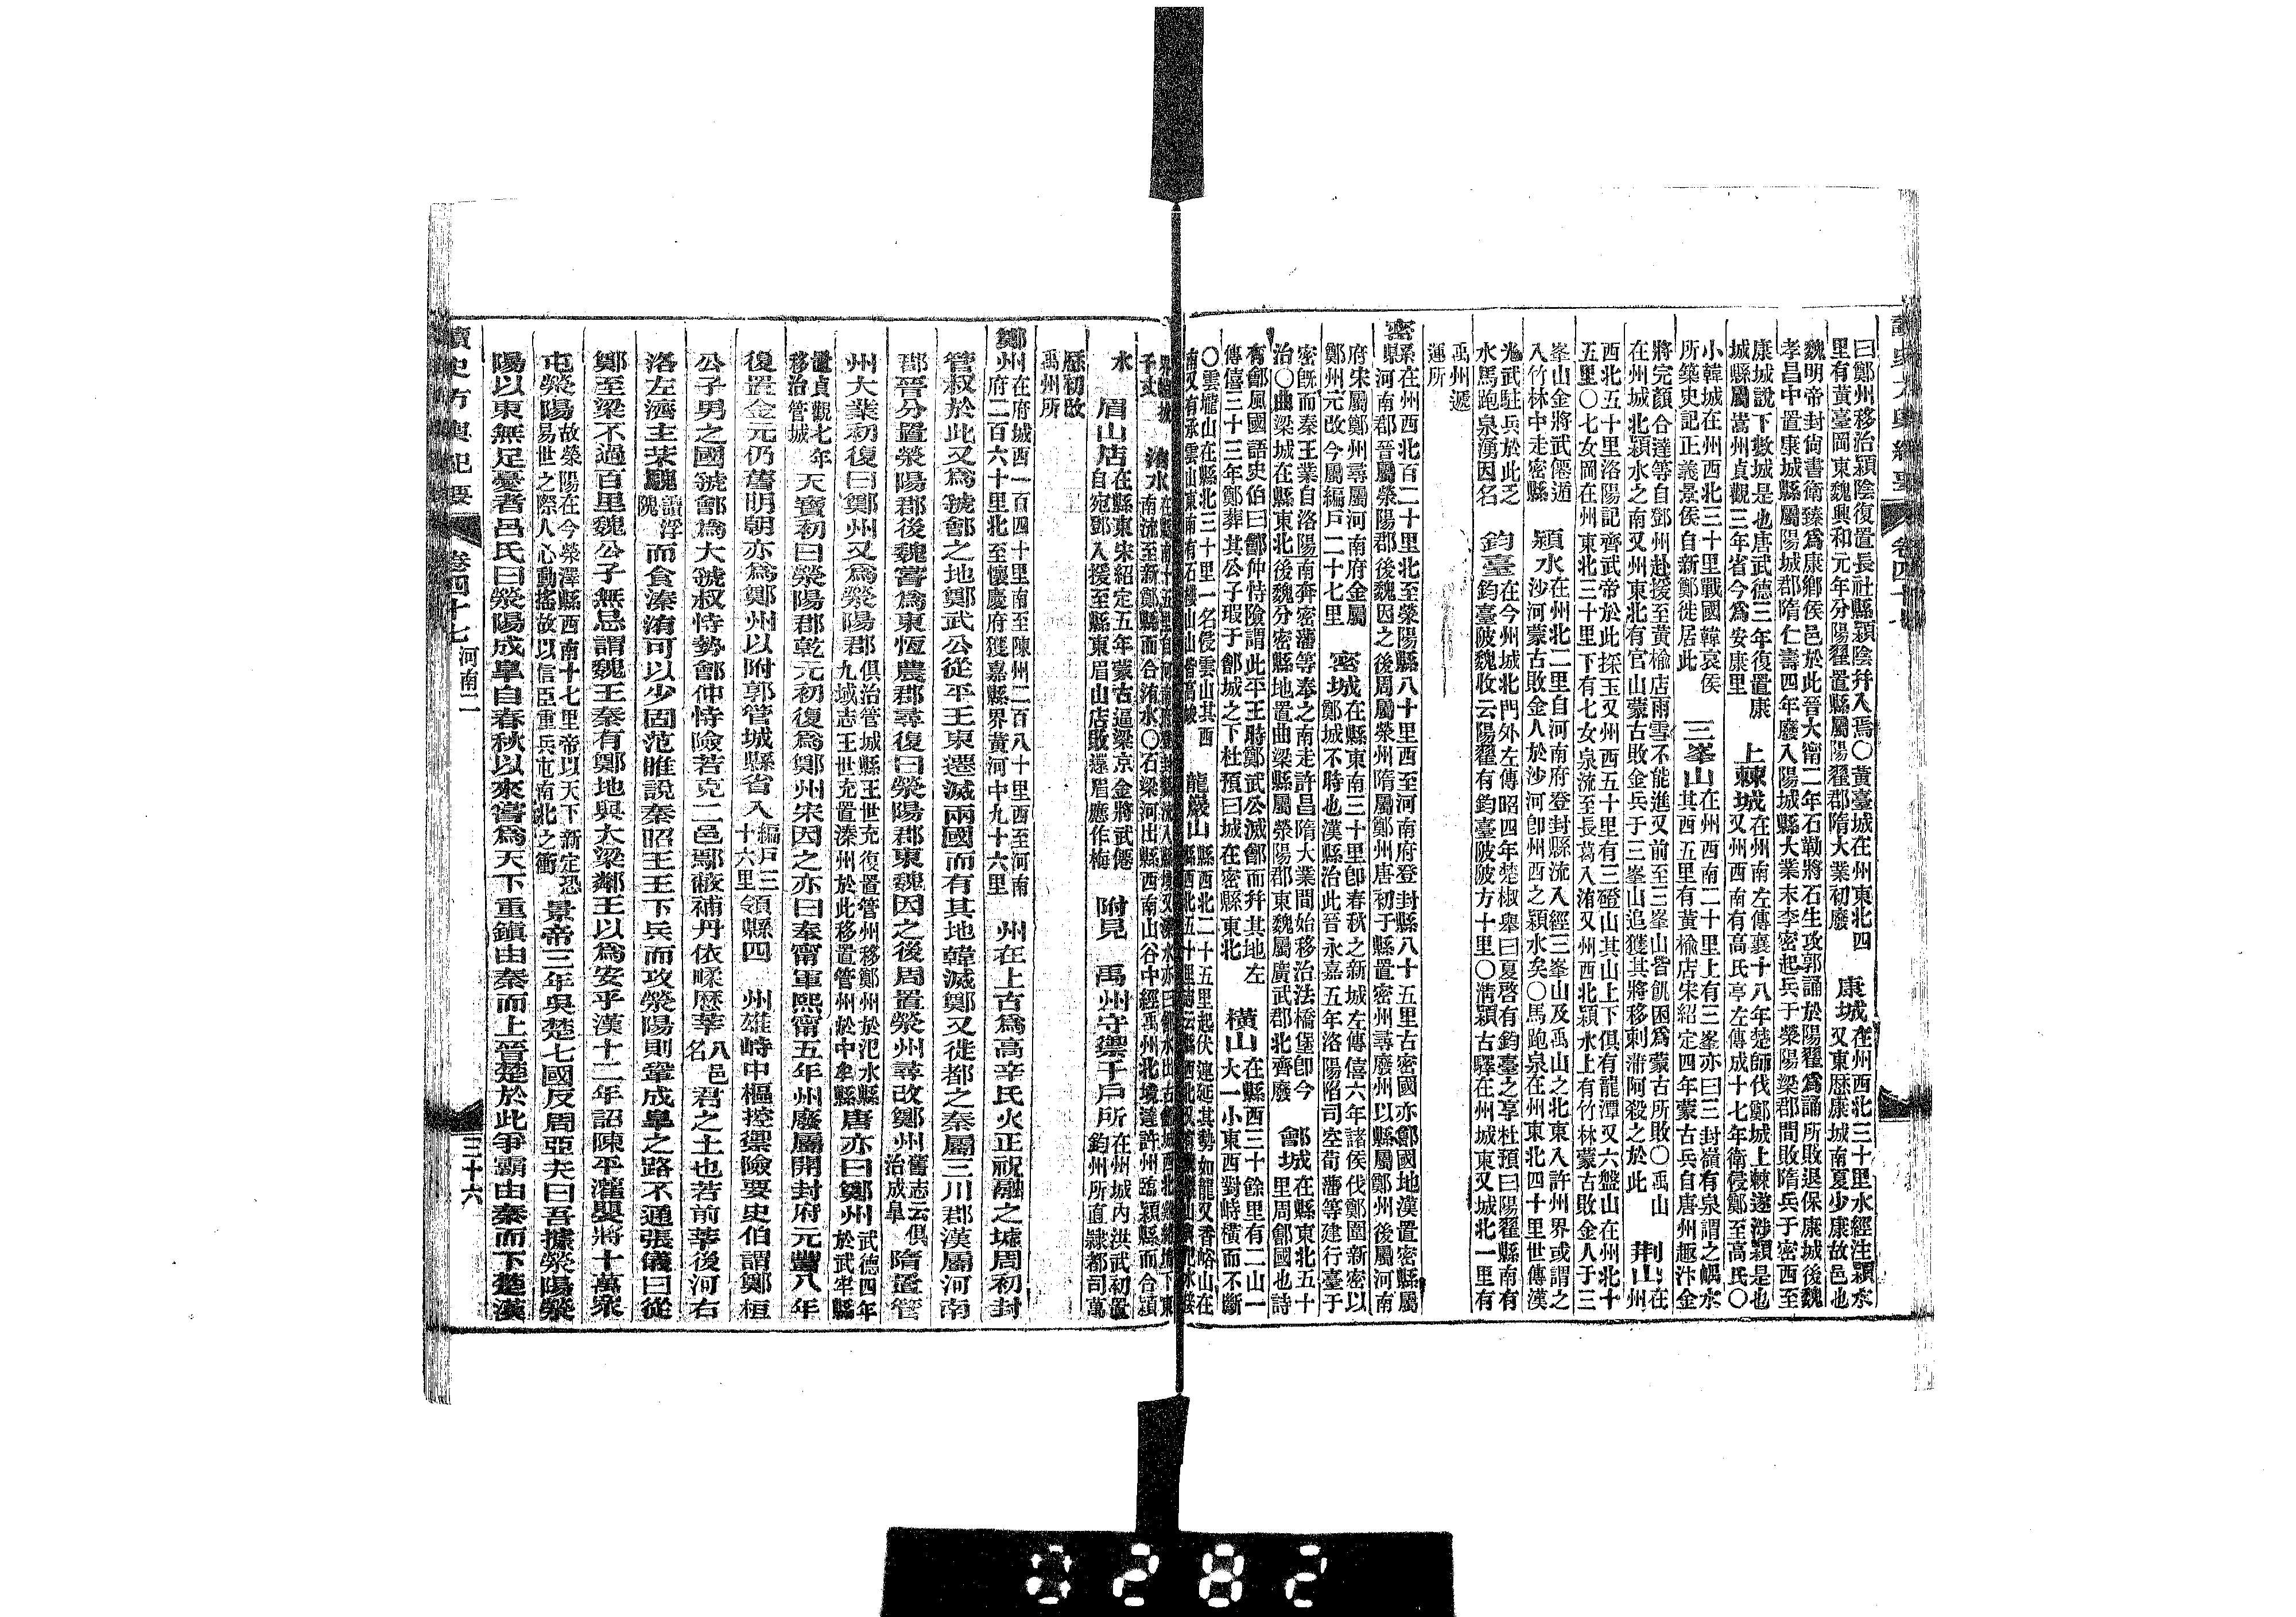 曰鄭州移治潁陰復置長社縣潁陰幷入焉○黃臺城在州東北四
里有黃臺岡東魏興和元年分陽翟置縣屬陽翟郡隋大業初廢
康城在州西北三十里水經注潁水
又東歷康城南夏少康故邑也
魏明帝封尙書衛臻爲康鄉侯邑於此晉大甯二年石勒將石生攻郭誦於陽翟爲誦所敗退保康城後魏
孝昌中置康城縣屬陽城郡隋仁壽四年廢入陽城縣大業末李密起兵于滎陽梁郡間敗隋兵于密西至
康城說下數城是也唐武德三年復置康
城縣屬嵩州貞觀三年省今爲安康里
上棘城在州南左傳襄十八年楚師伐鄭城上棘遂涉潁是也
又州西南有高氏亭左傳成十七年衛侵鄭至高氏○
小韓城在州西北三十里戰國韓哀侯
所築史記正義景侯自新鄭徙居此
三峯山在州西南二十里上有三峯亦曰三封嶺有泉謂之嵎水
其西五里有黃榆店宋紹定四年蒙古兵自唐州趣汴金
將完顏合達等自鄧州赴援至黃榆店雨雪不能進又前至三峯山皆飢困爲蒙古所敗○禹山在
在州城北潁水之南又州東北有官山蒙古敗金兵于三峯山追獲其將移剌蒲阿殺之於此
荆山在州
西北五十里洛陽記齊武帝於此採玉又州西五十里有三磴山其山上下俱有龍潭又六盤山在州北十
五里○七女岡在州東北三十里下有七女泉流至長葛入洧又州西北潁水上有竹林蒙古敗金人于三
峯山金將武僊遁
入竹林中走密縣
潁水在州北二里自河南府登封縣流入經三峯山及禹山之北東入許州界或謂之
沙河蒙古敗金人於沙河卽州西之潁水矣○馬跑泉在州東北四十里世傳漢
光武駐兵於此乏
水馬跑泉湧因名
鈞臺在今州城北門外左傳昭四年楚椒舉曰夏啓有鈞臺之享杜預曰陽翟縣南有
鈞臺陂魏收云陽翟有鈞臺陂陂方十里○淸潁古驛在州城東又城北一里有
禹州遞
運所
密縣在州西北百二十里北至滎陽縣八十里西至河南府登封縣八十五里古密國亦鄶國地漢置密縣屬
河南郡晉屬滎陽郡後魏因之後周屬滎州隋屬鄭州唐初于縣置密州尋廢州以縣屬鄭州後屬河南
府宋屬鄭州尋屬河南府金屬
鄭州元改今屬編戶二十七里
密城在縣東南三十里卽春秋之新城左傳僖六年諸侯伐鄭圍新密以
鄭城不時也漢縣治此晉永嘉五年洛陽陷司空荀藩等建行臺于
密旣而秦王業自洛陽南奔密藩等奉之南走許昌隋大業間始移治法橋堡卽今
治○曲梁城在縣東北後魏分密縣地置曲梁縣屬滎陽郡東魏屬廣武郡北齊廢
鄶城在縣東北五十
里周鄶國也詩
有鄶風國語史伯曰鄶仲恃險謂此平王時鄭武公滅鄶而幷其地左
傳僖三十三年鄭葬其公子瑕于鄶城之下杜預曰城在密縣東北
橫山在縣西三十餘里有二山一
大一小東西對峙橫而不斷
○雲巖山在縣北三十里一名侵雲山其西
龍巖山縣西北二十五里起伏連延其勢如龍又香峪山在
水
眉山店在縣東宋紹定五年蒙古逼梁京金將武僊
自宛鄧入援至縣東眉山店敗還眉應作梅
附見
禹州守禦千戶所在州城內洪武初置
鈞州所直隸都司萬
歷初改
禹州所
鄭州在府城西一百四十里南至陳州二百八十里西至河南
府二百六十里北至懷慶府獲嘉縣界黃河中九十六里
州在上古爲高辛氏火正祝融之墟周初封
管叔於此又爲虢鄶之地鄭武公從平王東遷滅兩國而有其地韓滅鄭又徙都之秦屬三川郡漢屬河南
郡晉分置滎陽郡後魏嘗爲東恆農郡尋復曰滎陽郡東魏因之後周置滎州尋改鄭州舊志云俱
治成皐
隋置管
州大業初復曰鄭州又爲滎陽郡俱治管城縣王世充復置管州移鄭州於汜水縣
九域志王世充置溱州於此移置管州於中牟縣
唐亦曰鄭州武德四年
於武牢縣
置貞觀七年
移治管城
天寶初曰滎陽郡乾元初復爲鄭州宋因之亦曰奉甯軍熙甯五年州廢屬開封府元豐八年
復置金元仍舊明朝亦爲鄭州以附郭管城縣省入編戶三
十六里
領縣四
州雄峙中樞控禦險要史伯謂鄭桓
公子男之國虢鄶爲大虢叔恃勢鄶仲恃險若克二邑鄢蔽補丹依㽥歷莘八邑
名
君之土也若前莘後河右
洛左濟主芣騩讀浮
隗
而食溱洧可以少固范睢說秦昭王王下兵而攻滎陽則鞏成皐之路不通張儀曰從
鄭至梁不過百里魏公子無忌謂魏王秦有鄭地與大梁鄰王以爲安乎漢十二年詔陳平灌嬰將十萬衆
屯滎陽故滎陽在今滎澤縣西南十七里帝以天下新定恐
易世之際人心動搖故以信臣重兵屯南北之衝
景帝三年吳楚七國反周亞夫曰吾據滎陽滎
陽以東無足憂者呂氏曰滎陽成皐自春秋以來嘗爲天下重鎮由秦而上晉楚於此爭霸由秦而下楚漢
讀史方輿紀要
卷四十七
河南二
三十六
0282